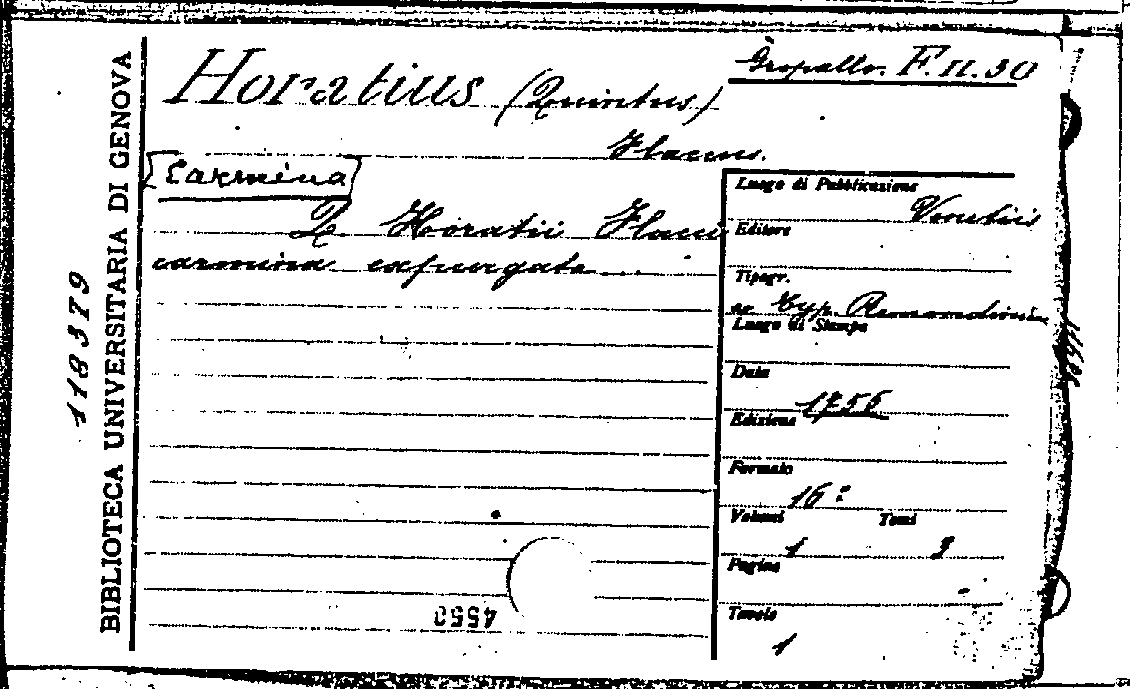 Gropallo. F.II.30
Horatius (Quintus)
Flaccus.
[Carmina]
Q. Horatii Flacci
carmina expurgata...
Luogo di Pubblicazione
Venetiis
Editore
Tipogr.
ex Typ. Remondinia
Luogo di Stampa
Data
1756
Edizione
Formato
16:
Volumi Tomi
1
Pagine
Tavole
1
BIBLIOTECA UNIVERSITARIA DI GENOVA
118379
4550